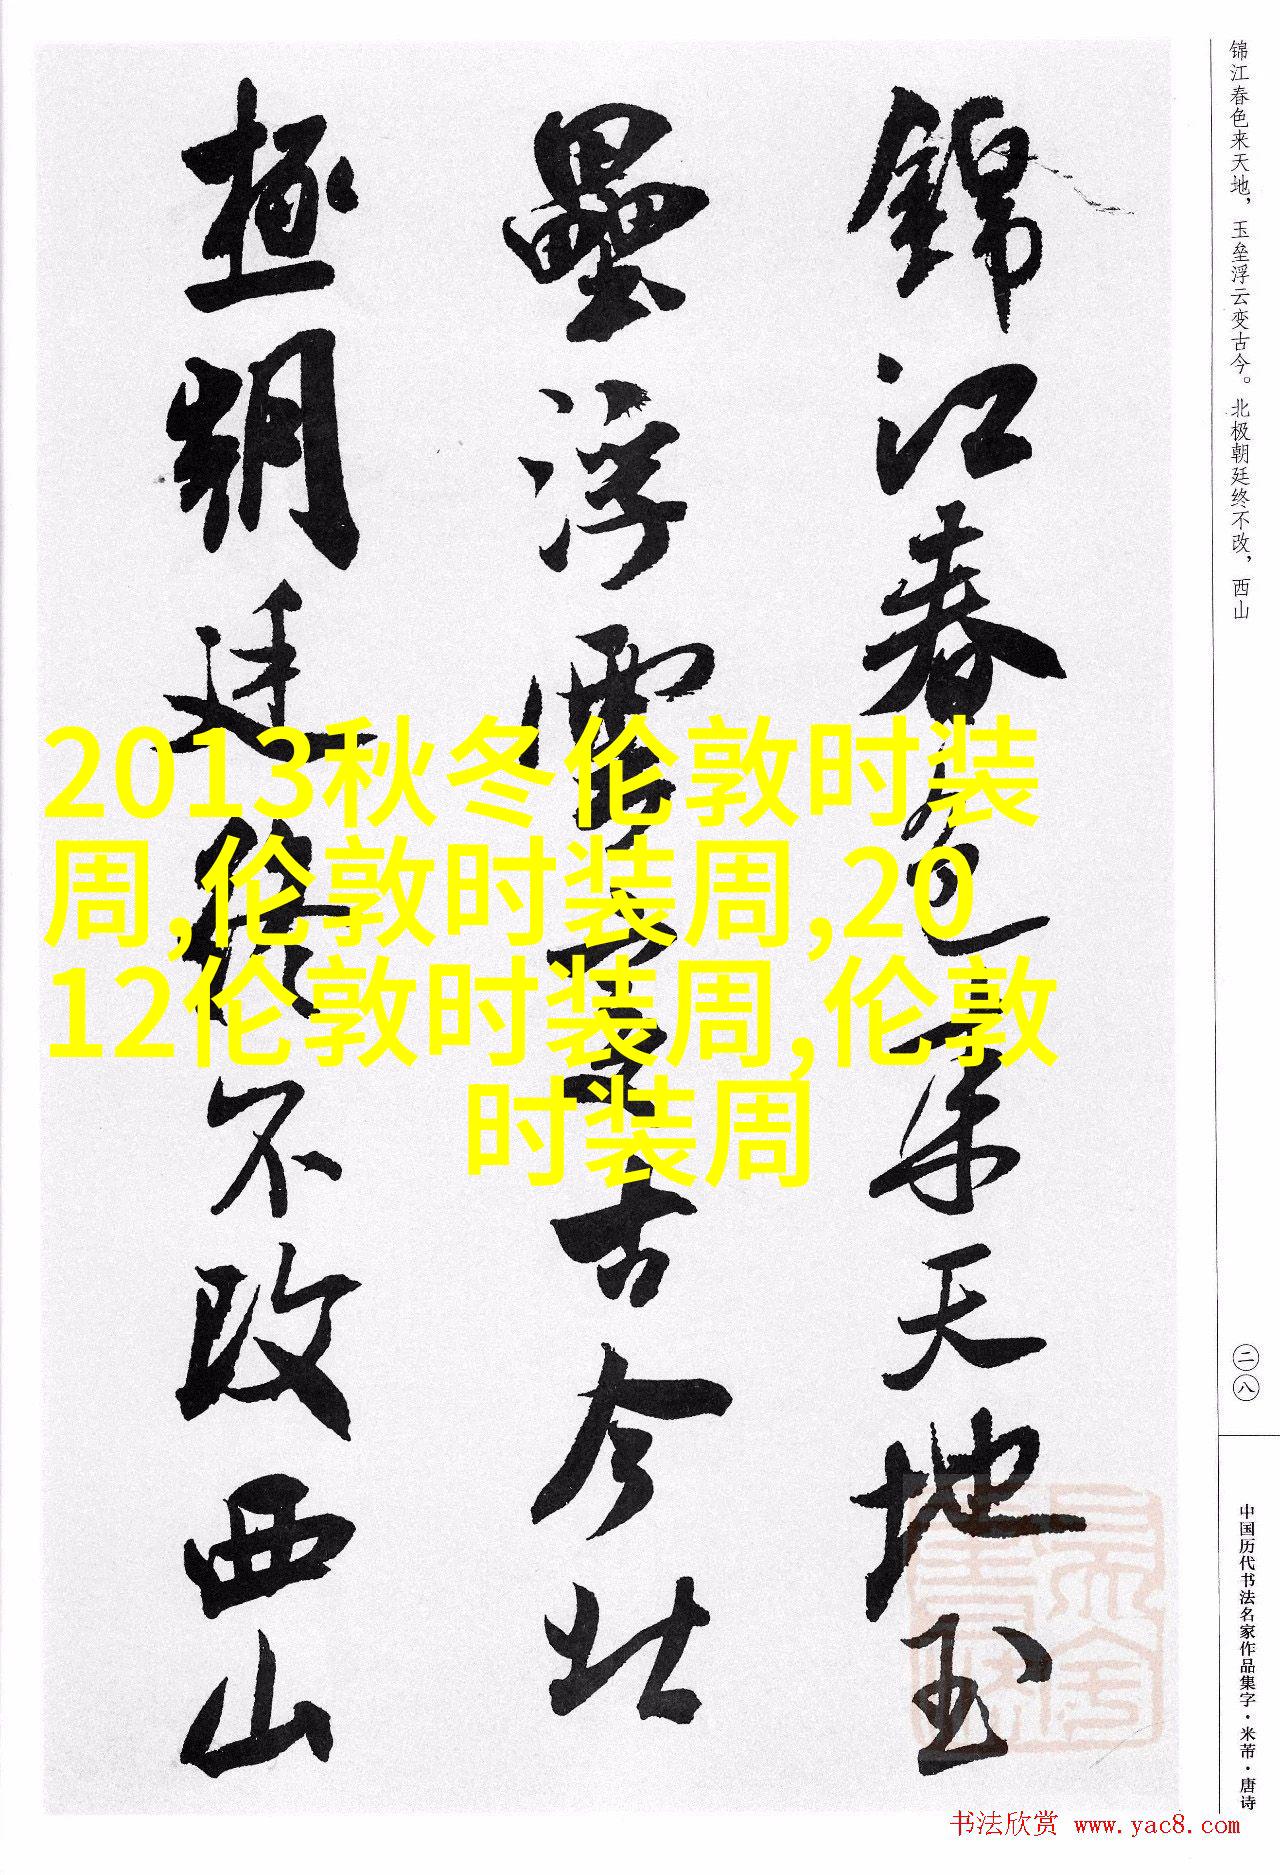 锦江春色来天地，玉垒浮云变古今。北极朝廷终不改，西山
錦江春色来天地玉
壘浮雲變古今北
極朝廷終不改西山
2013秋冬伦敦时装
周,伦敦时装周,20
12伦敦时装周,伦敦
时装周
二八
中国历代书法名家作品集字·米芾·唐诗
书法欣赏 www.yac8.com